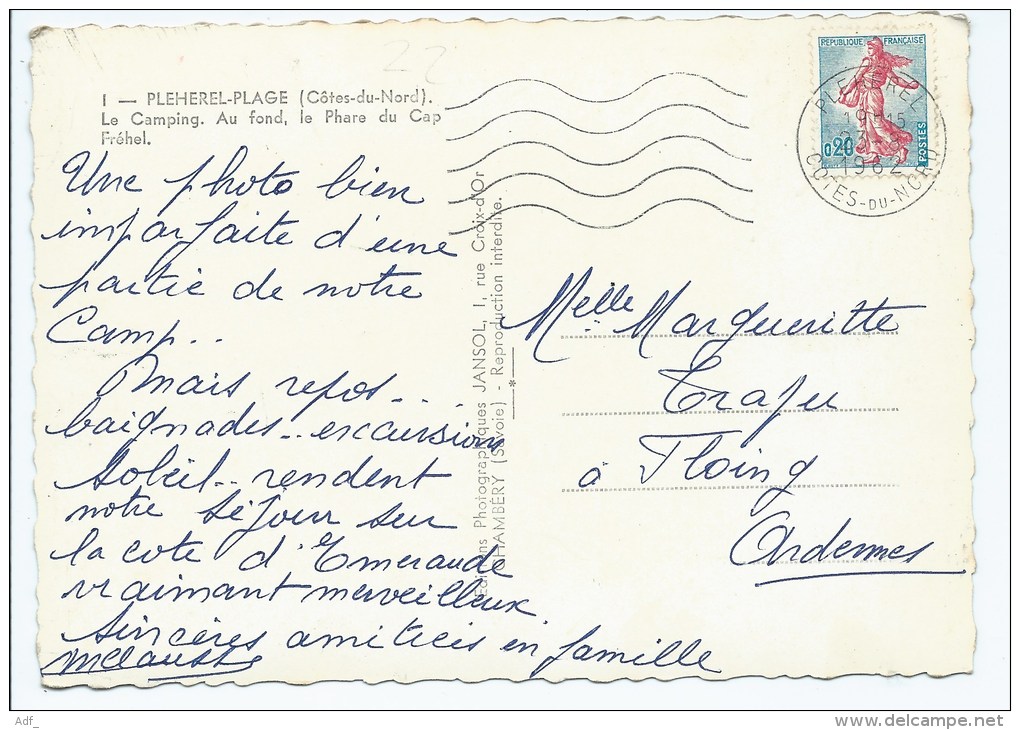 22
I — PLEHEREL-PLAGE (Côtes-du-Nord).
Le Camping. Au fond, le Phare du Cap
Fréhel.
Une photo bien
imparfaite d'une
partie de notre
Camp..
Mais repos...
baignades.. excursion
soleil.. rendent
notre séjour sur
la cote d'Emeraude
vraimant merveilleux
Sincères amitiés en famille
Editions Photographiques JANSOL, 1, rue Croix-d'Or
CHAMBÉRY (Savoie) - Reproduction interdite.
RÉPUBLIQUE FRANÇAISE
0,20
POSTES
PLEHEREL
19H15
1962
COTES-DU-NORD
Melle Margueritte
Trafu
à Floing
Ardennes
Adf_
delcampe.net